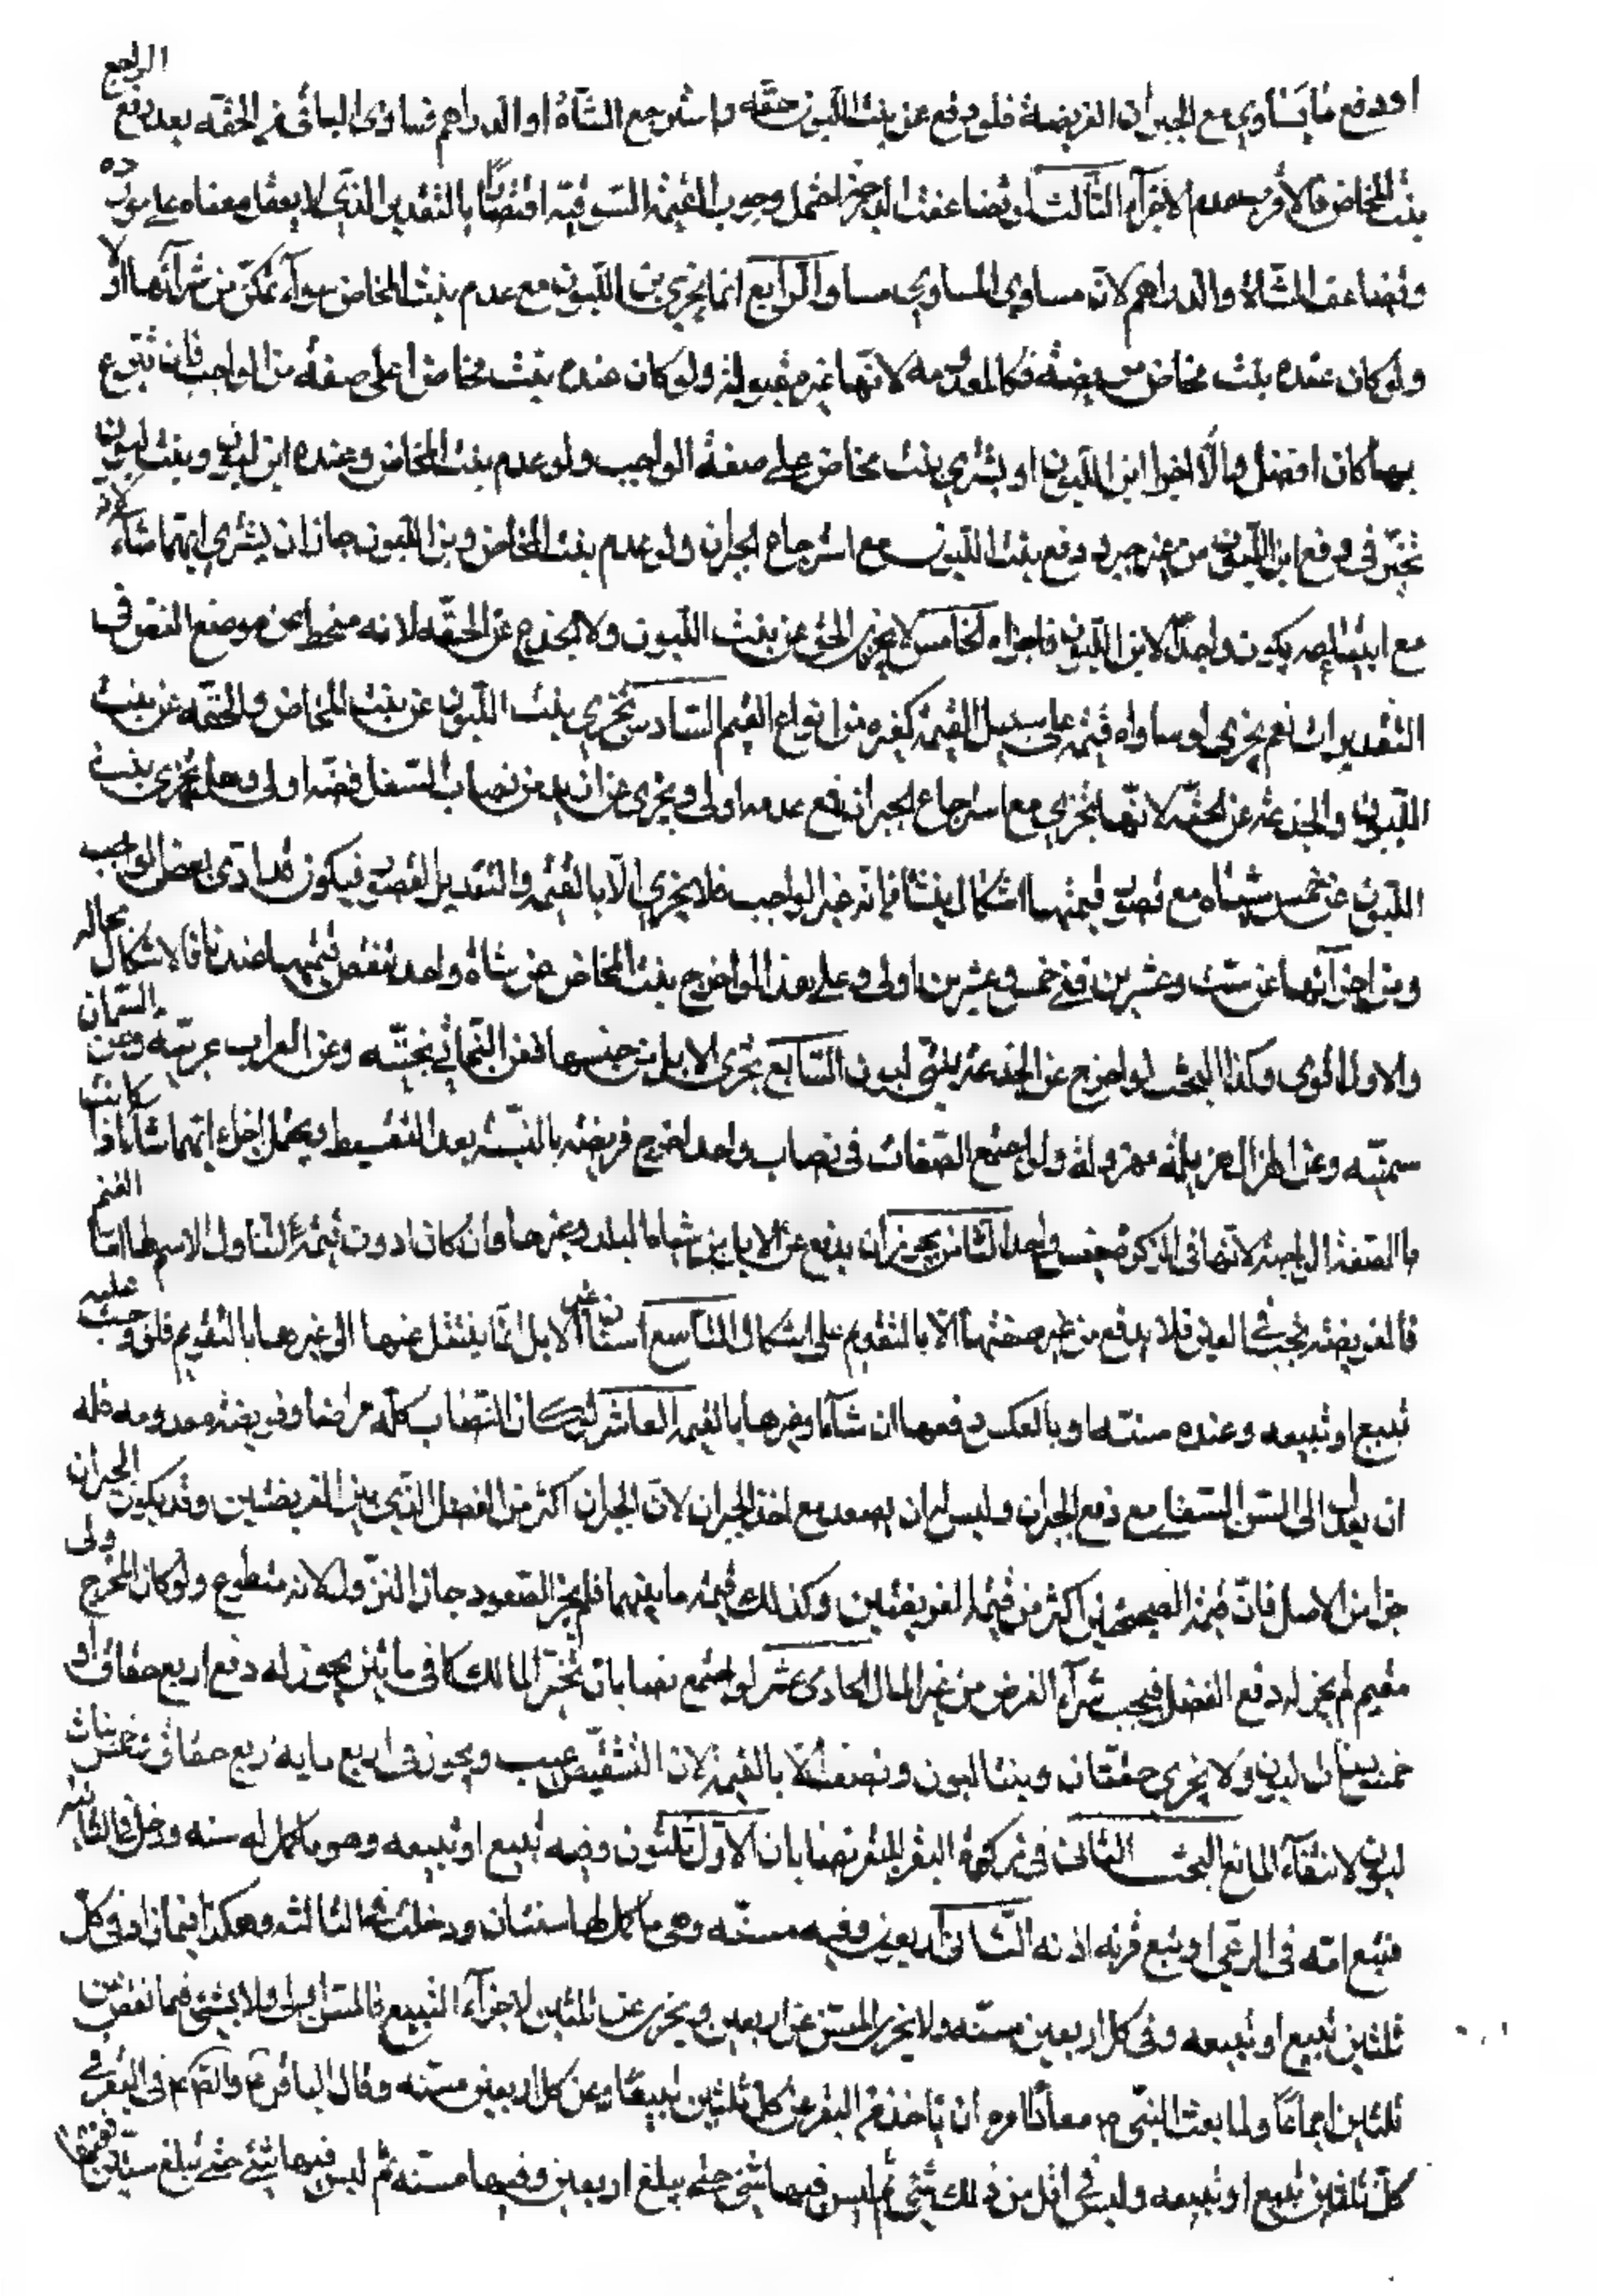 او دفع ما يساوي مع الجبران الفريضة فلو دفع عن بنت اللبون حقه واسترجع الشاة او الدراهم فساوى الباقي من الحقه بعد دفع الراجع
بنت المخاض فالأقرب عدم الاجزاء الثالث لو تضاعفت الدرجة احتمل وجوب القيمة السوقيه اقتصارا بالتقدير الذي لا يعقل معناه على مورده
وتضاعف الشاة والدراهم لان مساوي المساوي مساو الرابع انما يجزي بن اللبون مع عدم بنت المخاض سواء تمكن من شرائها او لا
ولو كان عنده بنت مخاض مريضة فكالمعدومه لانها غير مقبولة ولو كان عنده بنت مخاض اعلى صفة من الواجب فان تبرع
بها كان افضل والا اجزا ابن اللبون او يشتري بنت مخاض على صفة الواجب ولو عدم بنت المخاض وعنده ابن لبون وبنت لبون
تخير في دفع ابن اللبون من غير جبر ودفع بنت اللبون مع استرجاع الجبران ولو عدم بنت المخاض وبن اللبون جاز ان يشتري ايتهما شاء لان
مع ابتياعه يكون واجدا لابن اللبون فاجزاه الخامس لا يجزي الحق عن بنت اللبون ولا الجذع عن الحقه لانه منحط عن موضع النص في
التقديرات نعم يجزي لو ساواه قيمة على سبيل القيمة كغيره من انواع القيم السادس تجزي بنت اللبون عن بنت المخاض والحقه عن بنت
اللبون والجذعه عن الحقه لانها تجزي مع استرجاع الجبران فمع عدمه اولى ويجزى عن ازيد من نصاب السفل فعنه اولى وهل تجزي بنت
اللبون عن خمس شياه مع قصور قيمتها اشكال ينشا من انه غير الواجب فلا يجزي الا بالقيمة والتقدير القصور فيكون قد ادى بعض الواجب
ومن اجزائها عن ست وعشرين ففي خمس وعشرين اولى وعلى هذا لو اخرج بنت المخاض عن شاة واحد لنقص قيمتها عندنا فالاشكال بحاله
والاول اقوى وكذا البحث لو اخرج عن الجذعه بنتي لبون السابع تجزى الابل من جنسها فعن البخاتي بختيه وعن العراب عربيه وعن السمان
سمينه وعن الهزال هزيلة مهزوله ولو اجتمع الصفات في نصاب واحد اخرج فريضة بالنسبه بعد التقسيط ويحتمل اخراج ايتهما شاء اذا كانت
بالصفة الواجبة لانها في الزكوة جنس واحد الثامن يجوز ان يدفع عن الابل من شياه البلد وغيرها وان كان ادون قيمة لتناول الاسم لها اما الغنم
فالفريضة تجب في العين فلا يدفع من غير صفتها الا بالتقويم على اشكال التاسع اسنان غير الابل انما ينتقل عنها الى غيرها بالتقويم فلو وجب عليه
تبيع او تبيعه وعنده مسنه او بالعكس دفعها ان شاء او غيرها بالقيمة العاشر لو كان النصاب كله مراضا وفريضة معدومه فله
ان يعدل الى السن السفلى مع دفع الجبران وليس له ان يصعد مع اخذ الجبران لان الجبران اكثر من الفضل الذي بين الفريضتين وقد يكون الجبران
خيرا من الاصل فان قيمة الصحيحتين اكثر من قيمة المريضتين وكذلك قيمة ما بينهما فلم يجز الصعود جاز النزول لانه متطوع ولو كان المخرج ولي
مقيم لم يجز له دفع الفضل فيجب شراء الفرض من غير المال الحادى عشر لو اجتمع نصابان تخير المالك كما في مائتين يجوز له دفع اربع حقاق او
خمس بنات لبون ولا يجزي حقتان وبنتا لبون ونصف الا بالقيمة لان التشقيص عيب ويجوز في اربع مايه اربع حقاق وخمس بنات
لبون لانتفاء المانع البحث الثاني في زكوة البقر للبقر نصابان الاول ثلثون وفيه تبيع او تبيعه وهو ما كمل له سنه ودخل في الثانيه
فتبع امه في المرعى او تبع قرنه اذنه الثانى اربعون وفيه مسنه وهي ما كمل لها سنتان ودخلت في الثالثه وهكذا فيما زاد في كل
ثلثين تبيع او تبيعه وفي كل اربعين مسنه ولا يجزى المسن عن اربعين ويجزى عن ثلثين لاجزاء التبيع فالمسن اولى ولا شئ فيما نقص من
ثلثين اجماعا ولما بعث النبي ص معاذا امره ان ياخذ من البقر عن كل ثلثين تبيعا وعن كل اربعين مسنه وقال الباقر ع والصادق ع في البقر في
كل ثلثين تبيع او تبيعه وليس في اقل من ذلك شئ ثم ليس فيها شئ حتى يبلغ اربعين وفيها مسنه ثم ليس فيها شئ حتى تبلغ ستين ففيها